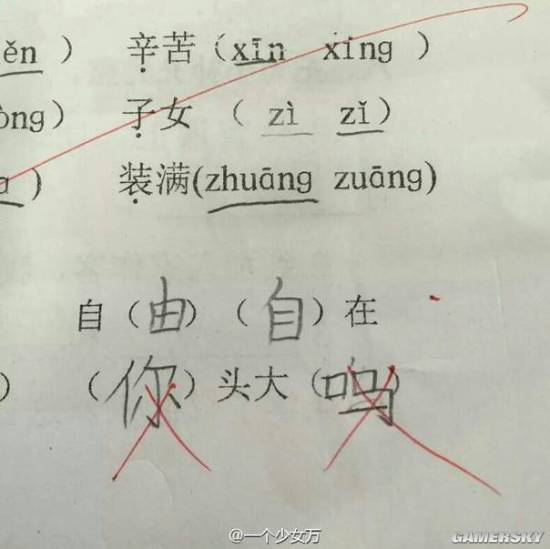 ěn ) 辛苦 (xīn xing )
òng) 子女 ( zì zǐ)
ɑ ) 装满(zhuāng zuāng)
自 (由) (自) 在
) (你) 头大 (吗)
@一个少女万
GAMERSKY